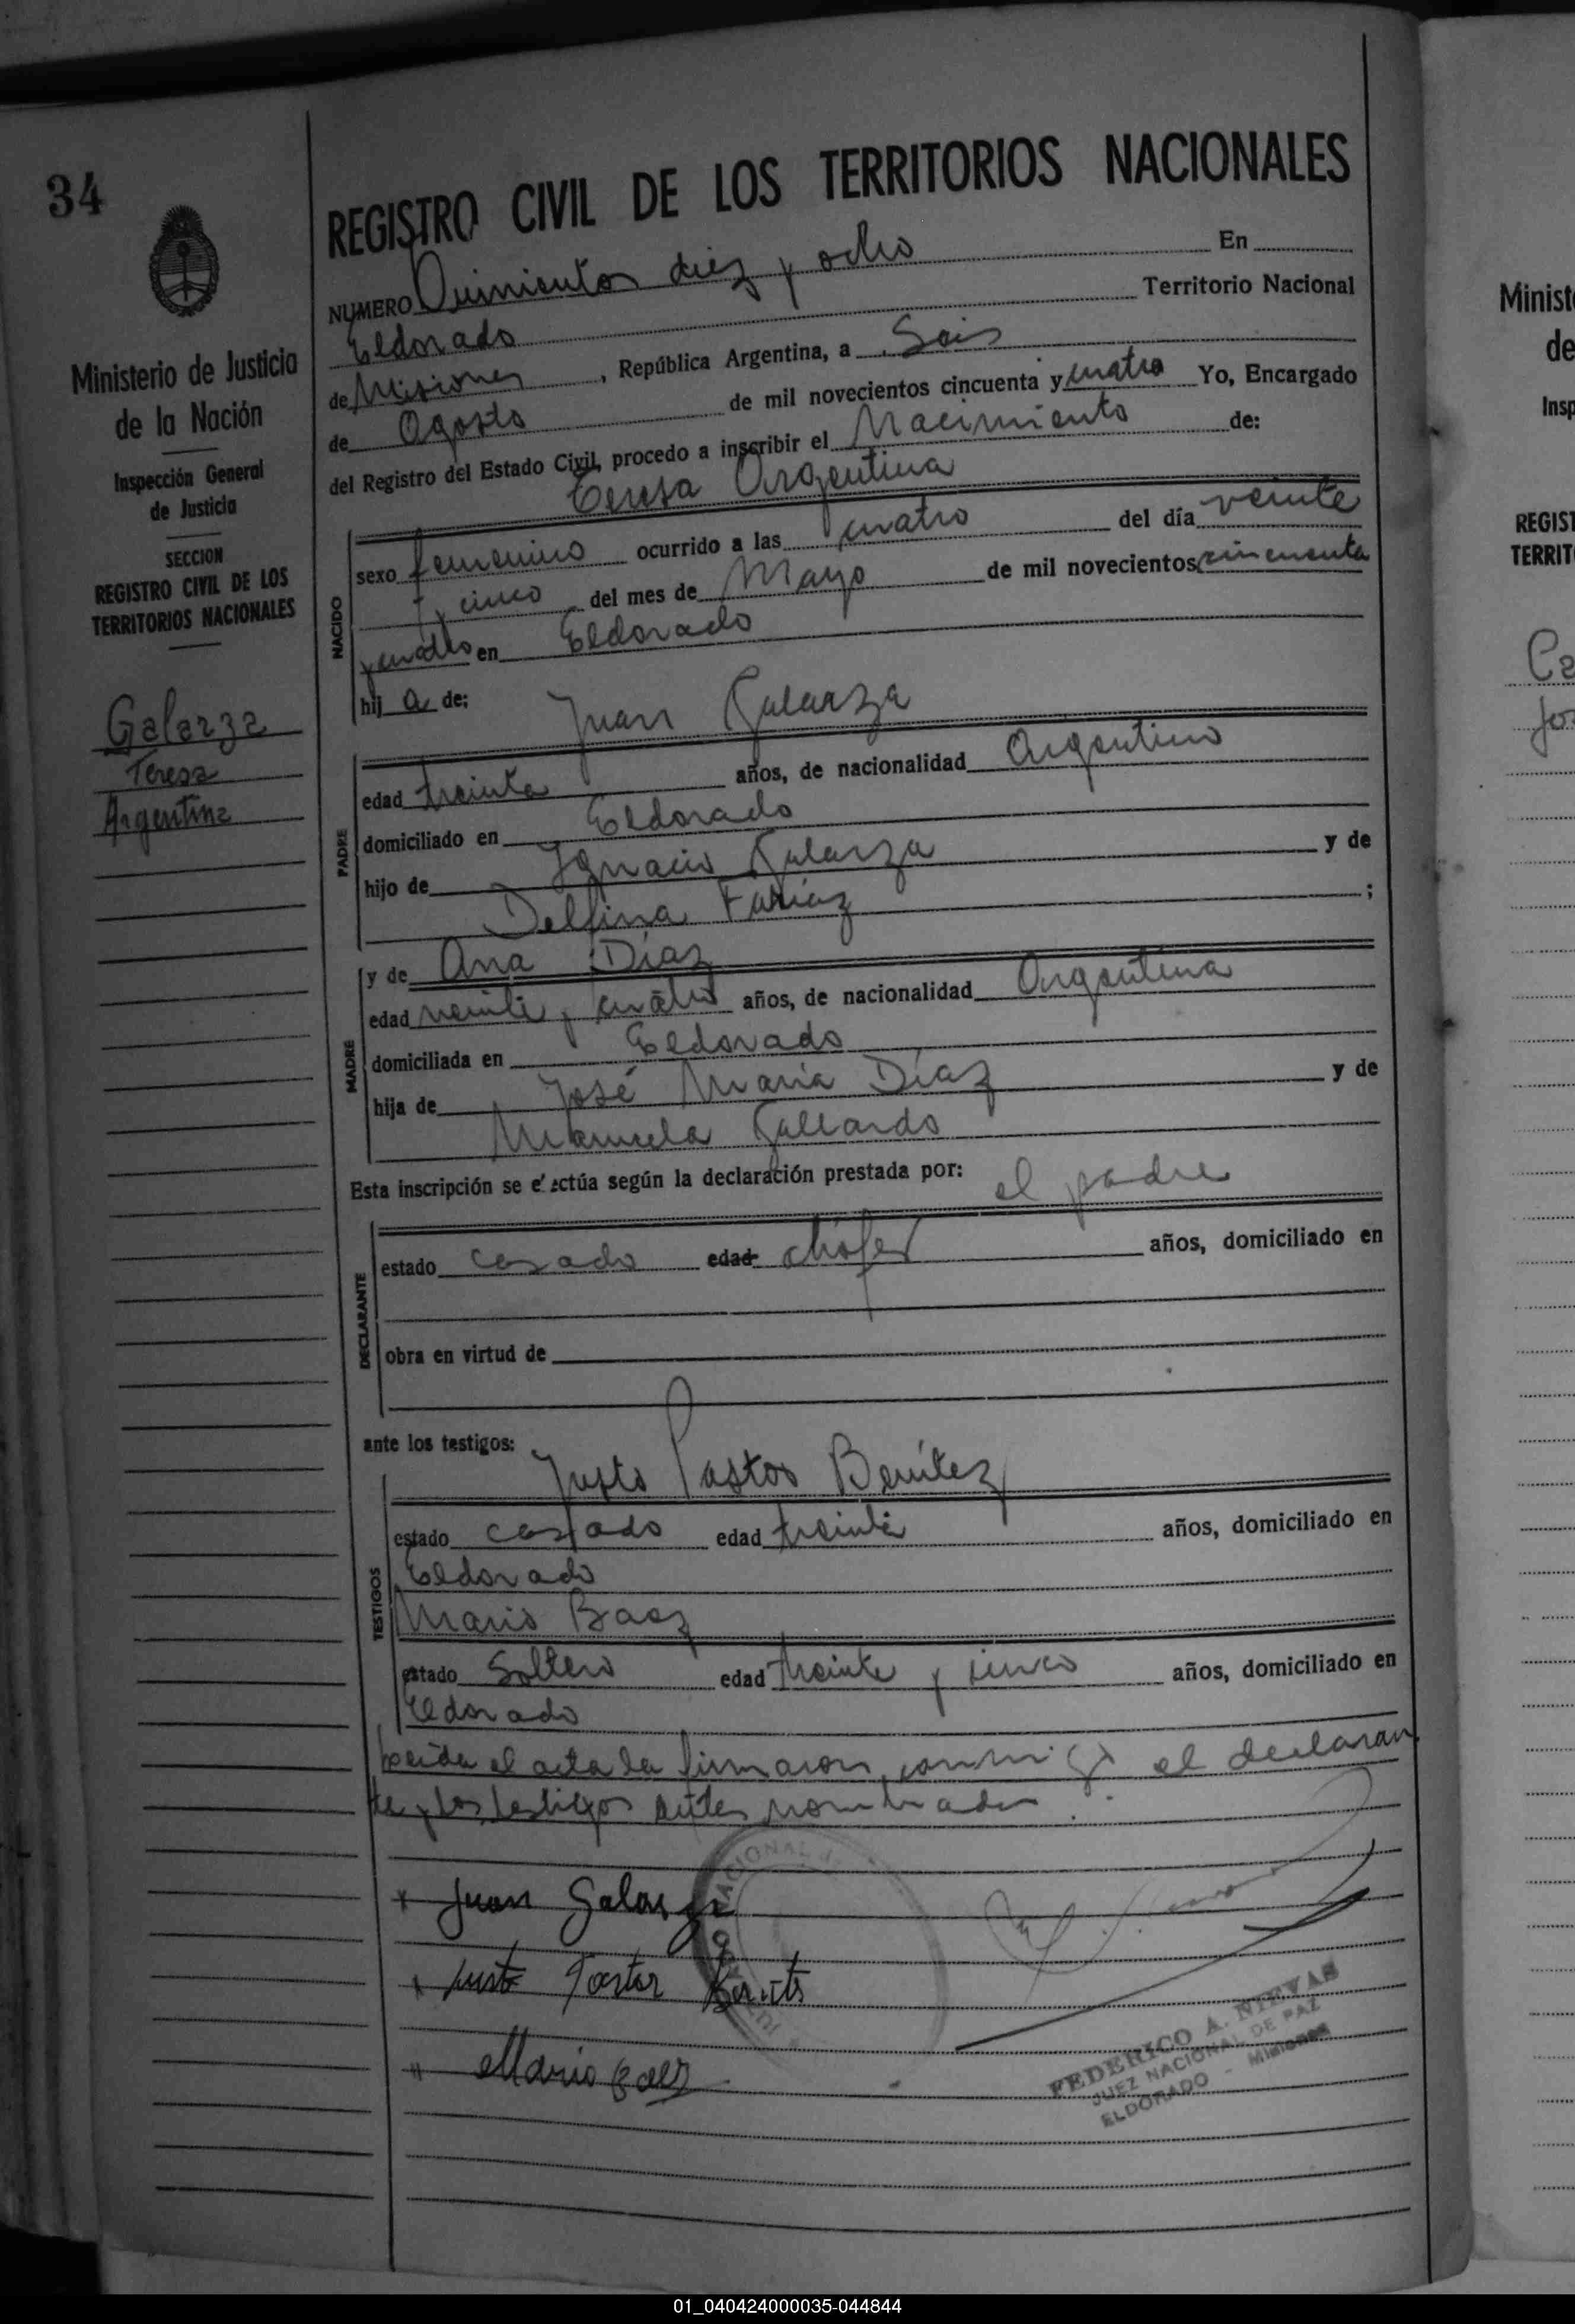 34
Ministerio de Justicia
de la Nación
Inspección General
de Justicia
SECCION
REGISTRO CIVIL DE LOS
TERRITORIOS NACIONALES
Galarza
Teresa
Argentina
REGISTRO CIVIL DE LOS TERRITORIOS NACIONALES
NUMERO Quinientos diez y ocho En
Eldorado Territorio Nacional
de Misiones, República Argentina, a Seis
de Agosto de mil novecientos cincuenta y cuatro Yo, Encargado
del Registro del Estado Civil, procedo a inscribir el Nacimiento de:
Teresa Argentina
NACIDO
sexo femenino ocurrido a las cuatro del día veinte
y cinco del mes de Mayo de mil novecientos cincuenta
y cuatro en Eldorado
hij a de:
Juan Galarza
PADRE
edad treinta años, de nacionalidad Argentino
domiciliado en Eldorado
hijo de Ignacio Galarza y de
Delfina Fariaz ;
MADRE
y de Ana Díaz
edad veinte y cuatro años, de nacionalidad Argentina
domiciliada en Eldorado
hija de José Maria Díaz y de
Manuela Gallardo
Esta inscripción se efectúa según la declaración prestada por: el padre
DECLARANTE
estado casado edad chófer años, domiciliado en
obra en virtud de
ante los testigos:
Justo Pastor Benítez
TESTIGOS
estado casado edad treinta años, domiciliado en
Eldorado
Mario Baez
estado Soltero edad treinta y cinco años, domiciliado en
Eldorado
Leída el acta la firmaron conmigo el declaran
te y los testigos antes nombrados.
Juan Galarza
Justo Pastor Benites
Mario Baez
FEDERICO A. NIEVAS
JUEZ NACIONAL DE PAZ
ELDORADO - Misiones
Minist
de
Insp
REGIST
TERRIT
01_040424000035-044844